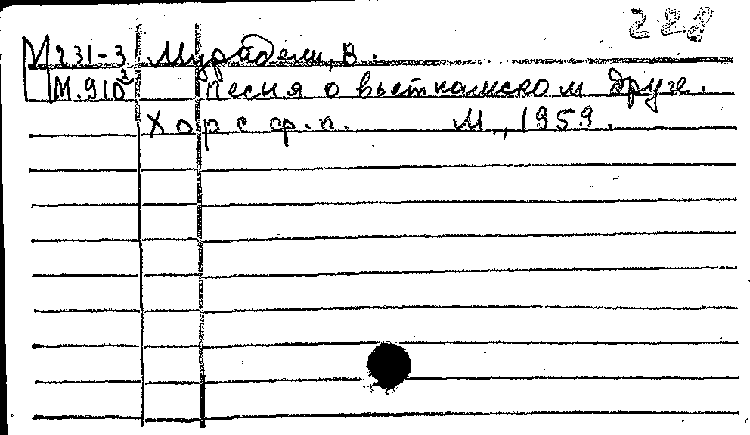 228
М231-3 Мурадели, В.
М.910² Песня о вьетнамском друге.
Хор с ф.п. М., 1959.